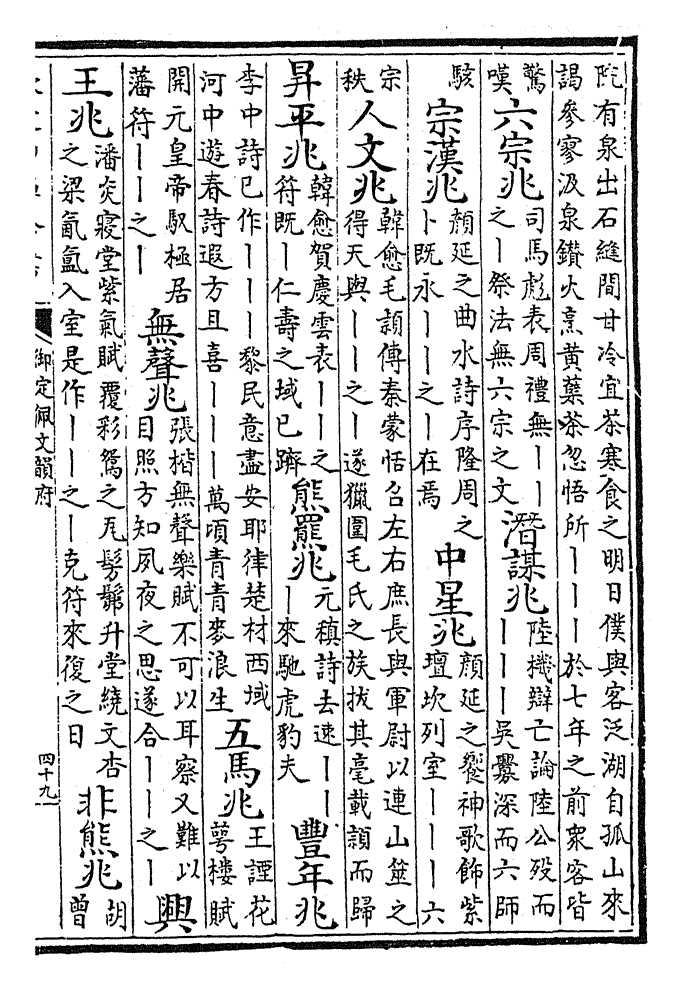 院有泉出石縫間甘冷宜茶寒食之明日僕與客泛湖自孤山來
謁參寥汲泉鑽火烹黃蘗茶忽悟所丨丨丨於七年之前衆客皆
驚嘆六宗兆司馬彪表周禮無丨丨之丨祭法無六宗之文潛謀兆陸機辯亡論陸公歿而丨丨丨吳釁深而六師
駭宗漢兆顔延之曲水詩序隆周之卜既永丨丨之丨在焉中星兆顔延之饗神歌飾紫壇坎列室丨丨丨六
宗秩人文兆韓愈毛頴傳秦蒙恬召左右庶長與軍尉以連山筮之得天與丨丨之丨遂獵圍毛氏之族拔其毫載頴而歸
昇平兆韓愈賀慶雲表丨丨之符既丨仁壽之域已躋熊羆兆元稹詩去速丨丨丨來馳虎豹夫豐年兆
李中詩已作丨丨丨黎民意盡安耶律楚材西域河中遊春詩遐方且喜丨丨丨萬頃青青麥浪生五馬兆王諲花萼樓賦
開元皇帝馭極居藩符丨丨之丨無聲兆張楷無聲樂賦不可以耳察又難以目照方知夙夜之思遂合丨丨之丨興
王兆潘炎寢堂紫氣賦覆彩鴛之瓦髣髴升堂繞文杏之梁氤氳入室是作丨丨之丨克符來復之日非熊兆胡曾
御定佩文韻府
四十九